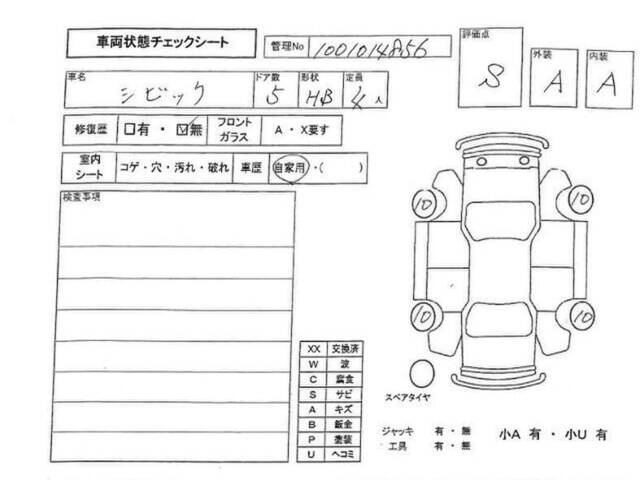 車両状態チェックシート
管理No 1001014856
評価点 S
外装 A
内装 A
車名 シビック
ドア数 5
形状 HB
定員 4人
修復歴 □有・☑無
フロントガラス A・X要す
室内シート コゲ・穴・汚れ・破れ
車歴 自家用・( )
検査事項
10 10
10 10
XX 交換済
W 波
C 腐食
S サビ
A キズ
B 鈑金
P 塗装
U ヘコミ
スペアタイヤ
ジャッキ 有・無
工具 有・無
小A 有・小U 有